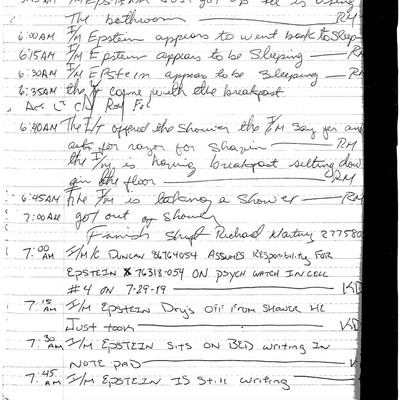 The bathroom — RM
6:00AM I/M Epstein appears to went back to sleep
6:15AM I/M Epstein appears to be sleeping — RM
6:30AM I/M Epstein appears to be sleeping — RM
6:35AM the come with the breakfast
6:40AM The offered the shower the I/M say yes and
ask for razor for shavin — RM
the I/M is having breakfast sitting down
on the floor — RM
6:45AM The I/M is taking a shower — RM
7:00AM got out of shower
Finish shift Richard
7:00 AM I/M K DUNCAN 86764054 ASSUMES RESPONSIBILITY FOR
EPSTEIN 76318-054 ON PSYCH WATCH IN CELL
#4 ON 7-29-19 — KD
7:15 AM I/M EPSTEIN Drys OFF FROM SHOWER HE
JUST TOOK — KD
7:30 AM I/M EPSTEIN SITS ON BED WRITING IN
NOTE PAD — K
7:45 AM I/M EPSTEIN IS STILL WRITING